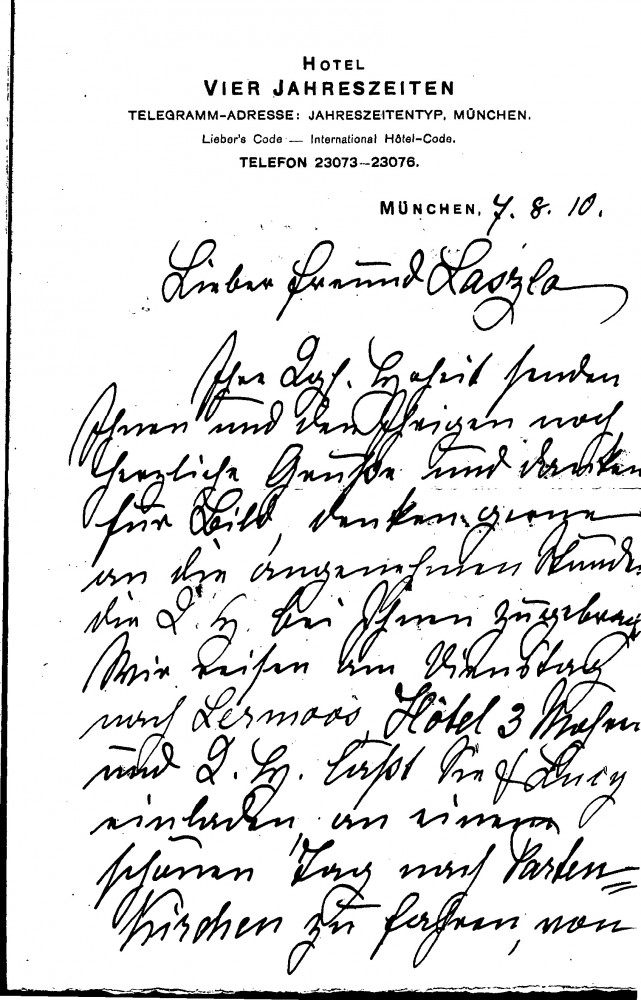 HOTEL
VIER JAHRESZEITEN
TELEGRAMM-ADRESSE: JAHRESZEITENTYP, MÜNCHEN.
Lieber's Code — International Hôtel-Code.
TELEFON 23073–23076.
MÜNCHEN, 7. 8. 10.
Lieber Freund Laszlo
Ihre Kgl. Hoheit senden
Ihnen und den Ihrigen noch
herzliche Grüße und danken
für Bild, denken gerne
an die angenehmen Stunde
die I. H. bei Ihnen zugebrag
Wir reisen am Dienstag
nach Lermoos, Hôtel 3 Mohren
und I. H. laßt Sie & Lucy
einladen, an einem
schönen Tag nach Parten=
kirchen zu fahren, von